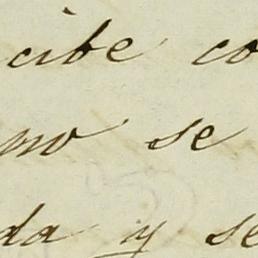 cibe co
mo se
da y se